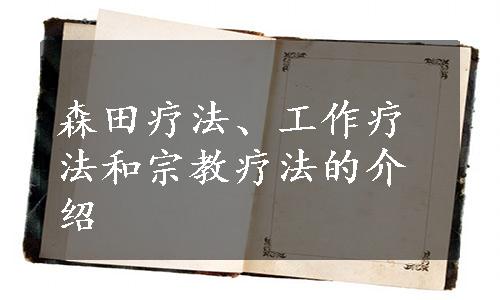 森田疗法、工作疗
法和宗教疗法的介
绍